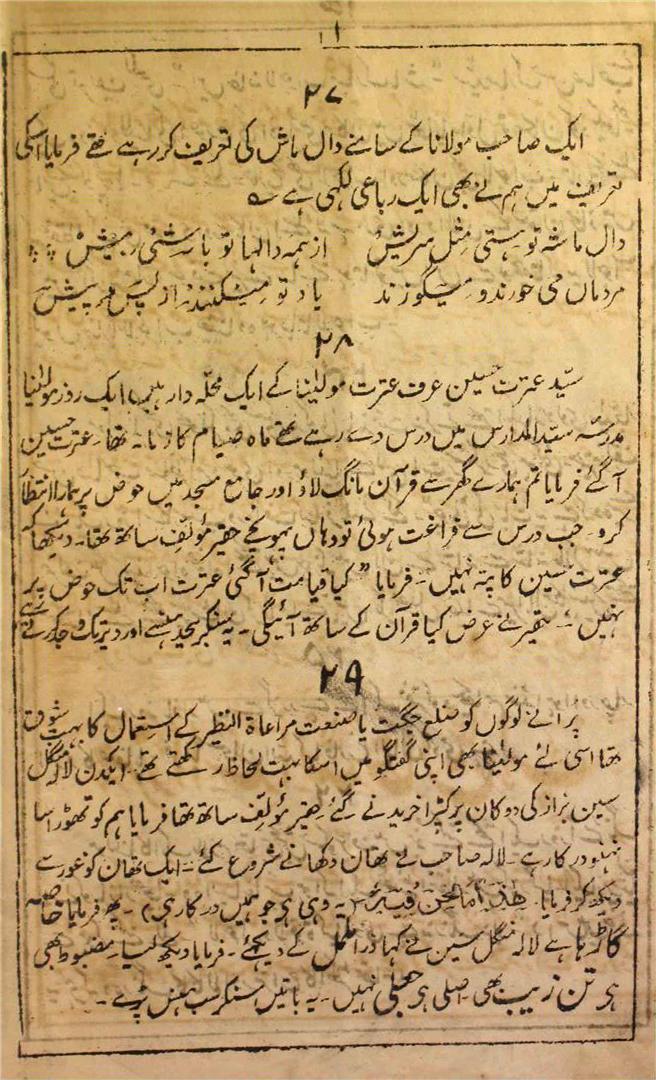 ۱۱
۲۷
ایک صاحب مولانا کے سامنے دال ماش کی تعریف کر رہے تھے فرمایا اسکی
تعریف میں ہم نے بھی ایک رباعی لکھی ہے ؎
دال ماشہ تو ہستی مثل سریش از ہمہ دالہا تو باشی بیش
مردماں می خورند و میگوزند یاد تو میکنند از پس و پیش
۲۸
سیّد عترت حسین عرف عترت مولیٰنا کے ایک محلہ دار ہیں ایک روز مولیٰنا
مدرسہ سیّد المدارس میں درس دے رہے تھے ماہ صیام کا زمانہ تھا۔ عترت حسین
آگئے فرمایا تم ہمارے گھر سے قرآن مانگ لاؤ اور جامع مسجد میں حوض پر ہمارا انتظار
کرو۔ جب درس سے فراغت ہوئی تو وہاں پہونچے حقیر مؤلف ساتھ تھا۔ دیکھا کہ
عترت حسین کا پتہ نہیں۔ فرمایا ” کیا قیامت آگئی عترت اب تک حوض پر
نہیں حقیر نے عرض کیا قرآن کے ساتھ آئیگی۔ یہ سنکر بیحد ہنسے اور دیر تک وجد کرتے رہے
۲۹
پرانے لوگوں کو ضلع جگت یا صنعت مراعاۃ النظیر کے استعمال کا بہت شوق
تھا اسی لئے مولیٰنا بھی اپنی گفتگو میں اسکا بہت لحاظ رکھتے تھے۔ ایکدن لالہ منگل
سین بزاز کی دوکان پر کپڑا خریدنے گئے حقیر مؤلف ساتھ تھا فرمایا ہم کو تھوڑا سا
درکار ہے۔ لالہ صاحب نے تھان دکھانے شروع کئے۔ ایک تھان کو غور سے
دیکھ کر فرمایا۔ ھٰذا اما نحن فیہ (یہ وہی ہی جو ہمیں درکار ہی)۔ پھر فرمایا خاصہ
گاڑھا ہے لالہ منگل سین نے کہا ذرا ململ کے دیکھئے۔ فرمایا دیکھ لیا۔ مضبوط بھی
ہی تن زیب بھی۔ اصلی ہی جعلی نہیں۔ یہ باتیں سنکر سب ہنس پڑے۔